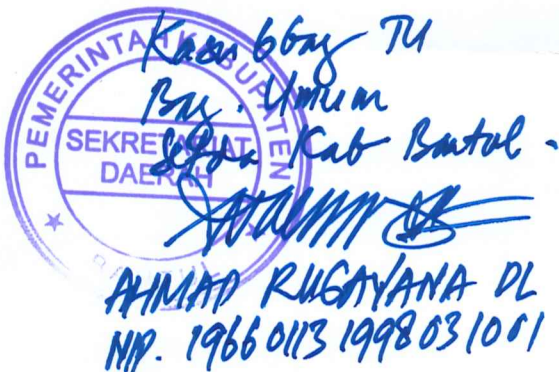 PEMERINTAH KABUPATEN
SEKRETARIAT
DAERAH
BANTUL
Kasubbag TU
Bag. Umum
Setda Kab Bantul.
AHMAD RUGAYANA DL
NIP. 19660113 199803 1001